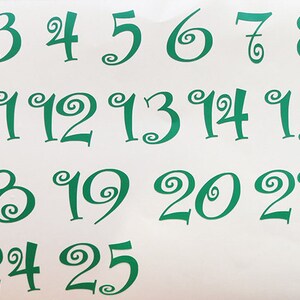 3 4 5 6 7 8
11 12 13 14 1
8 19 20 2
24 25